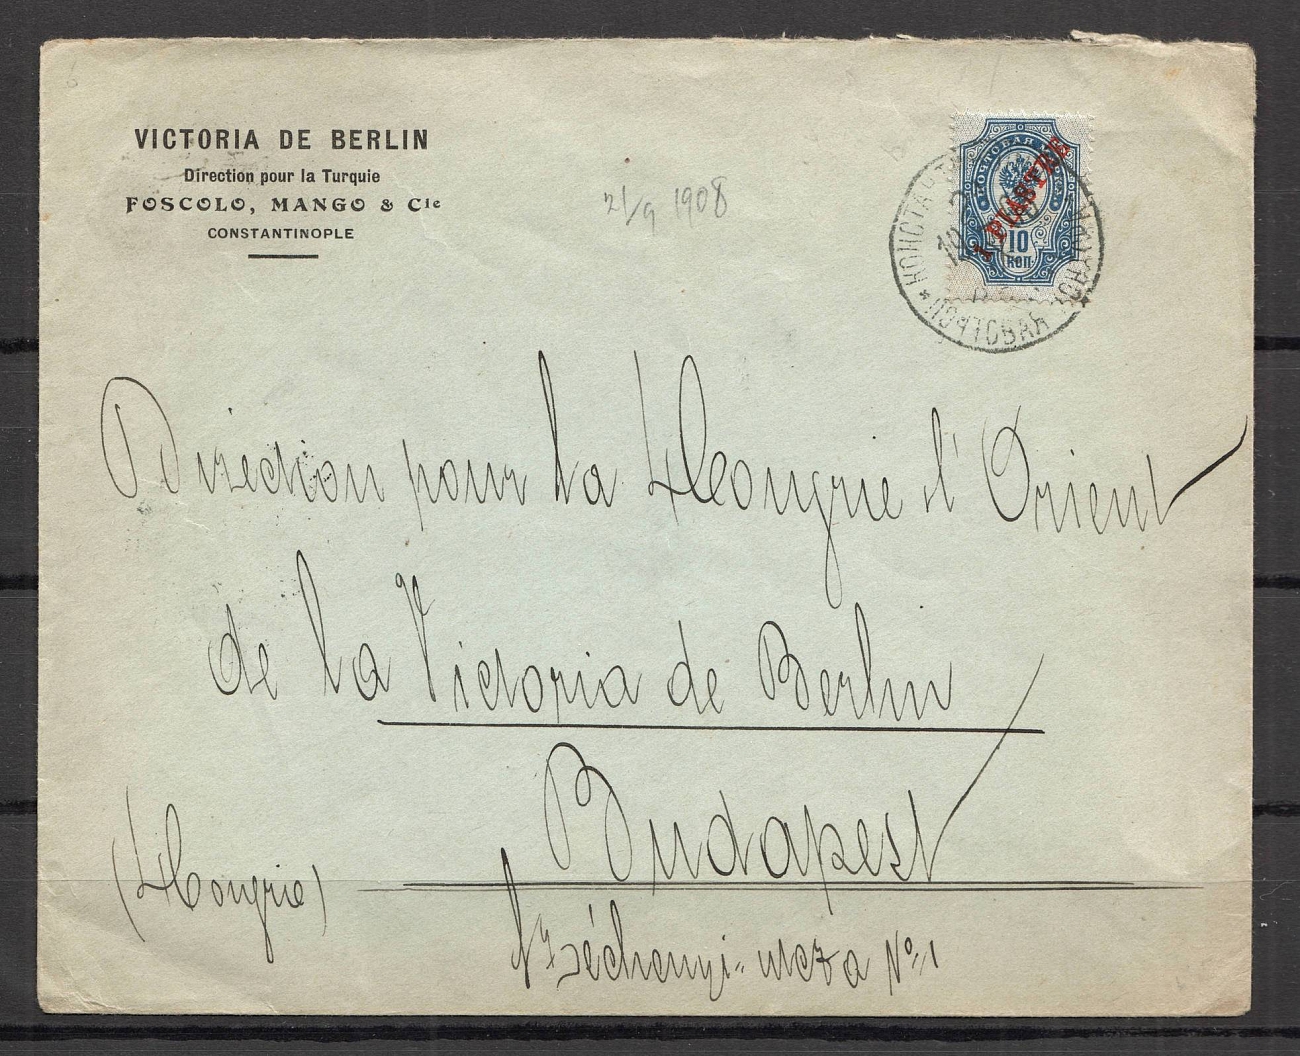 VICTORIA DE BERLIN
Direction pour la Turquie
FOSCOLO, MANGO & Cie
CONSTANTINOPLE
21/9 1908
ПОЧТОВАЯ
1 PIASTRE
10
КОП
Direction pour la Hongrie d'Orient
de la Victoria de Berlin
Budapest
(Hongrie)
Széchenyi-utcza No 1